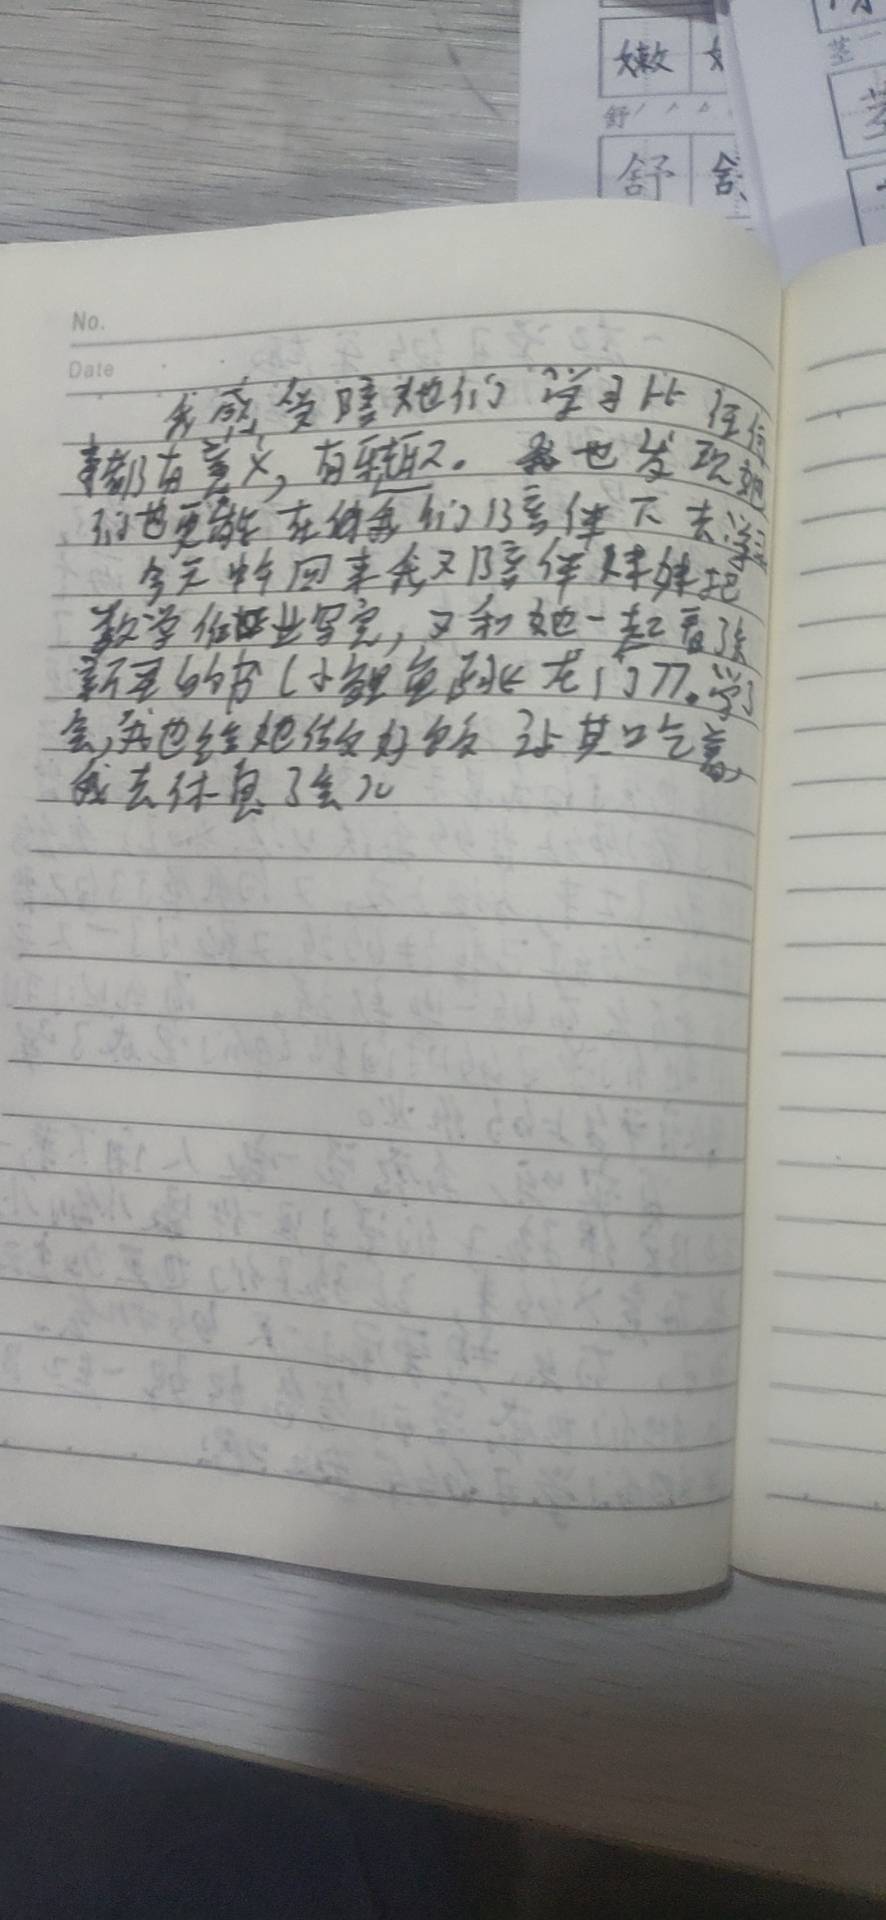 嫩
舒
舒 舒
No.
Date
我感受陪她们学习比任何
事都有意义,有乐趣。我也发现她
们也更能在我们陪伴下去学习
今天中午回来我又陪伴妹妹把
数学作业写完,又和她一起看了会
新买的书(小鲤鱼跃龙门)。学了
会,我也给她做好饭让其吃着,
我去休息了会儿